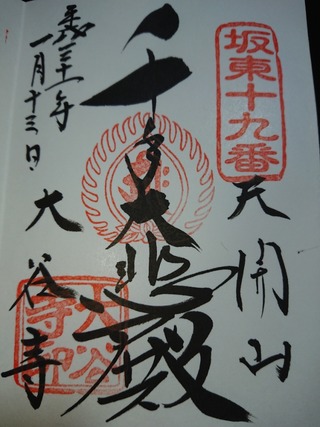 坂東十九番
天開山
千手大悲殿
平成三十一年
一月十三日
大谷寺
大谷寺印